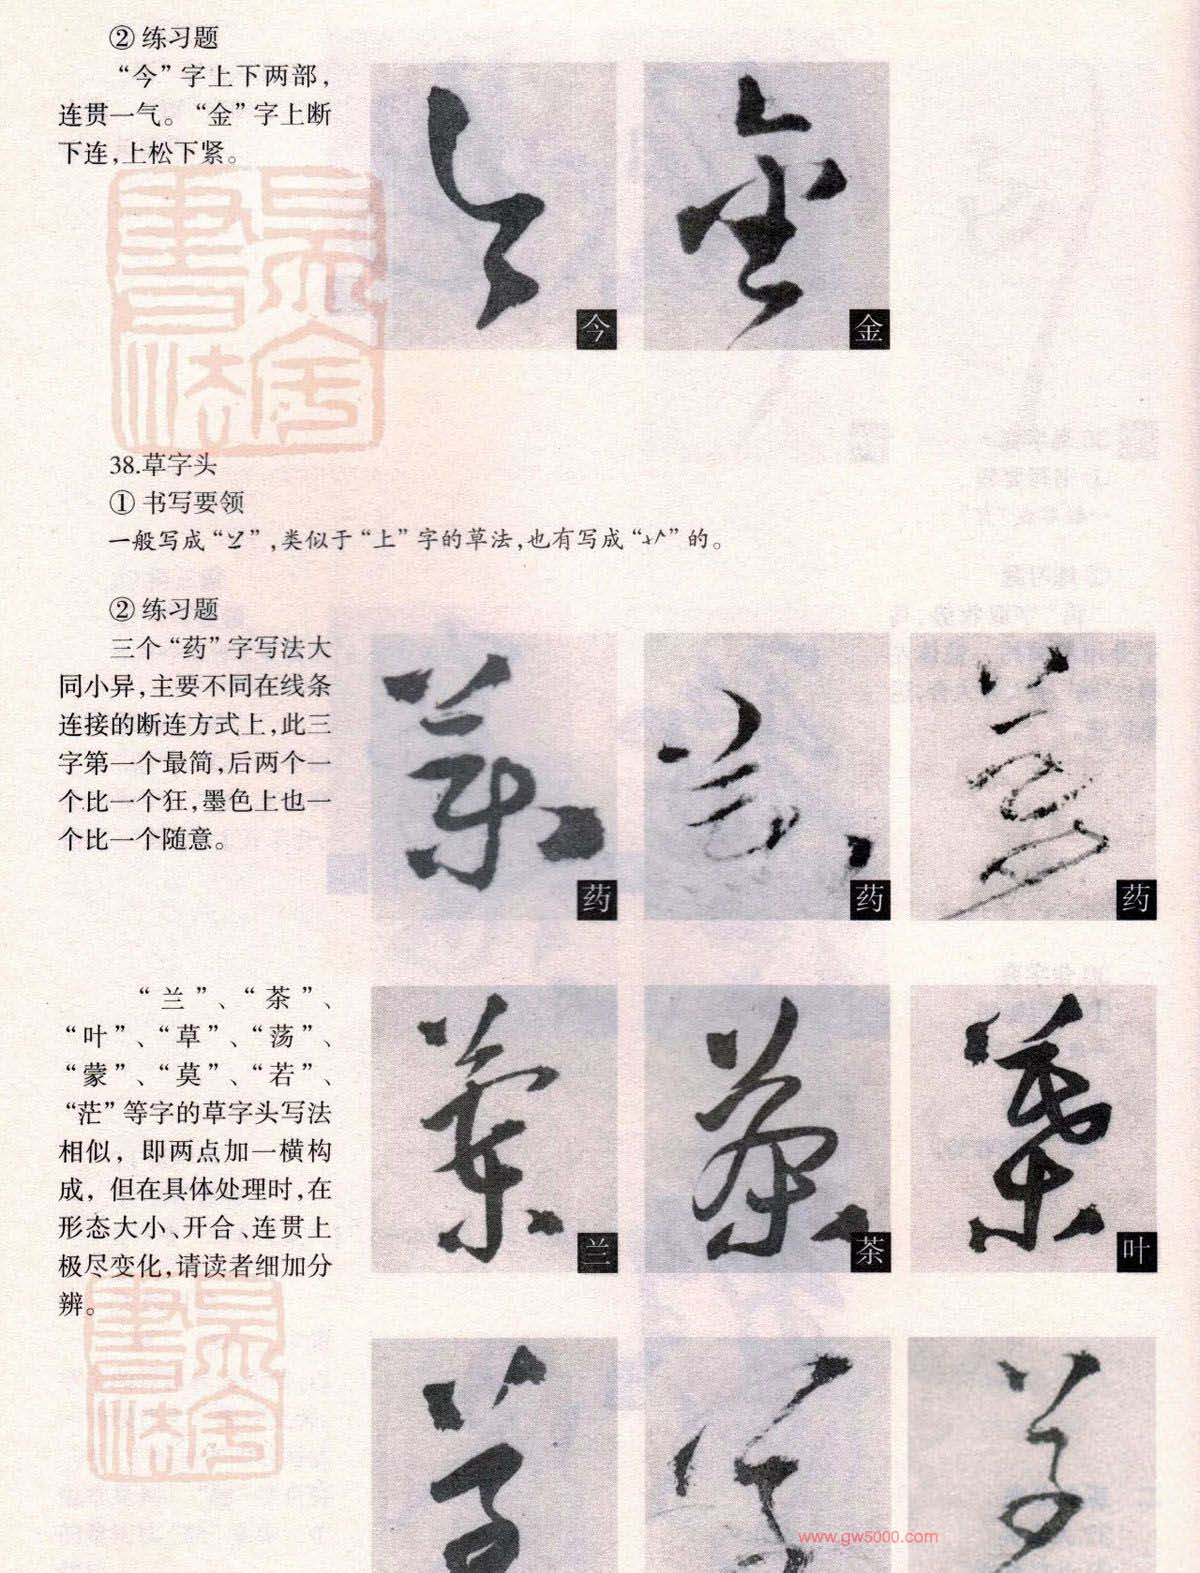 ② 练习题
“今”字上下两部，
连贯一气。“金”字上断
下连，上松下紧。
今
金
38.草字头
① 书写要领
一般写成“”，类似于“上”字的草法，也有写成“”的。
② 练习题
三个“药”字写法大
同小异，主要不同在线条
连接的断连方式上，此三
字第一个最简，后两个一
个比一个狂，墨色上也一
个比一个随意。
药
药
药
“兰”、“茶”、
“叶”、“草”、“荡”、
“蒙”、“莫”、“若”、
“茫”等字的草字头写法
相似，即两点加一横构
成，但在具体处理时，在
形态大小、开合、连贯上
极尽变化，请读者细加分
辨。
兰
茶
叶
www.gw5000.com